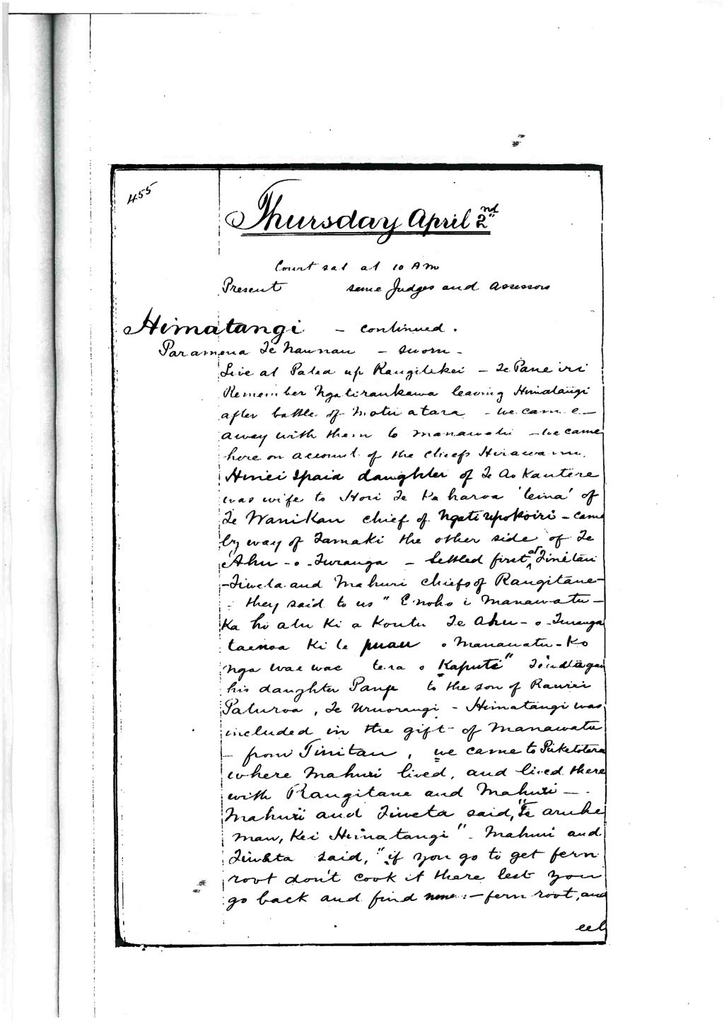 455
Thursday April 2nd
Court sat at 10 AM
Present same Judges and assessors
Himatangi - continued.
Paramena Te Naunau - sworn -
Live at Patea up Rangitikei - Te Pane iri
Remember Ngatiraukawa leaving Himatangi
after battle of Motuatara - we came
away with them to Manawatu - we came
here on account of the chiefs Hirawanu.
daughter of Te Ao
was wife to Hori Te Ka haroa of
Te Wanikau chief of Ngatiupokoiri - came
by way of Tamaki the other side of Te
Ahu-o-Turanga - settled first at Tinitau
- Tiweta and Mahuri chiefs of Rangitane -
they said to us "E noho i Manawatu -
Ka hi atu ki a Koutu Te Ahu-o-Turanga
taenoa Ki te puau o Manawatu - Ko
nga wae wae tera o Kaputi"
his daughter to the son of Rawiri
Paturoa, Te Uruorangi - Himatangi was
included in the gift of Manawatu
- from Tinitau, we came to Puketotara
where Mahuri lived, and lived there
with Rangitane and Mahuri -
Mahuri and Tiweta said, "Te aruhe
mau, Kei Himatangi" - Mahuri and
Tiweta said, "if you go to get fern
root don't cook it there lest you
go back and find none: - fern root, and
eel